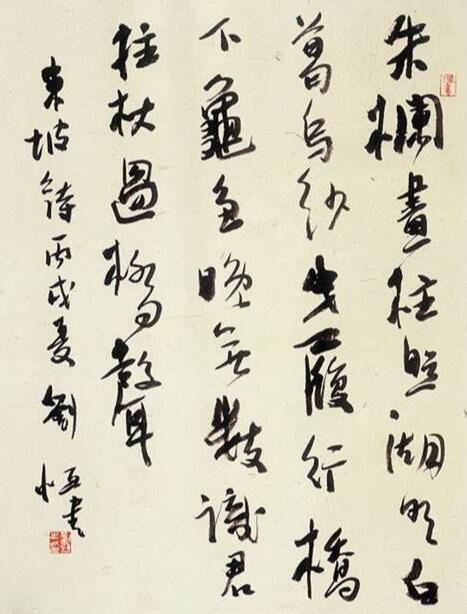 朱欄畫柱照湖明白
葛烏紗曳履行橋
下龜魚晚無數識君
拄杖過橋聲
東坡詩丙戌夏劉恒書